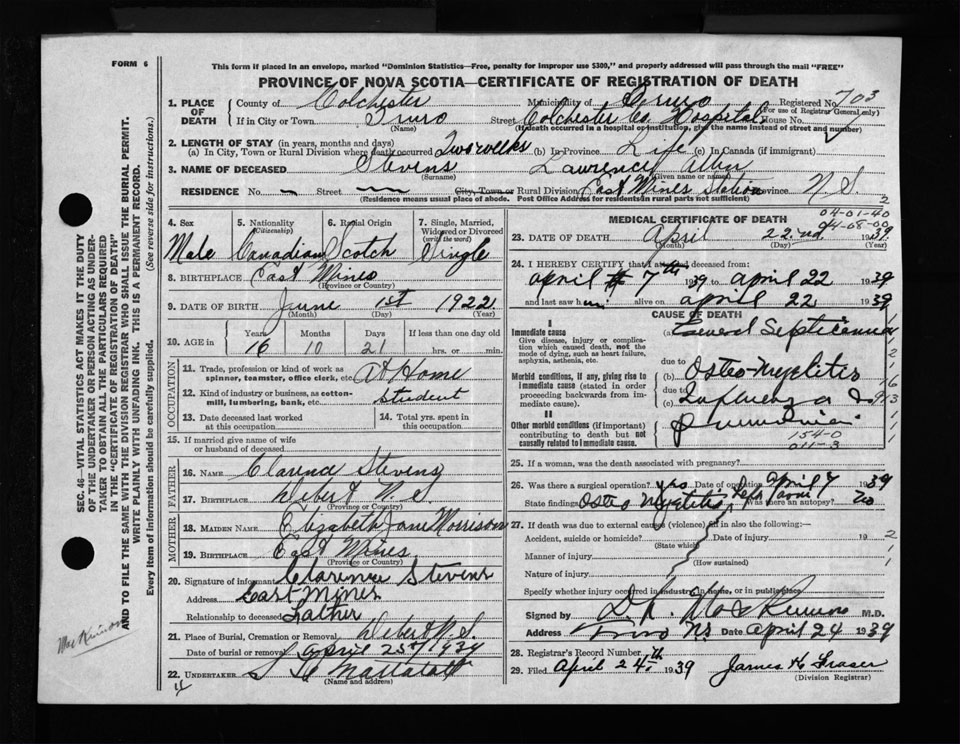 FORM 6
This form if placed in an envelope, marked "Dominion Statistics—Free, penalty for improper use $300," and properly addressed will pass through the mail "FREE"
PROVINCE OF NOVA SCOTIA—CERTIFICATE OF REGISTRATION OF DEATH
1. PLACE OF DEATH County of Colchester Municipality of Truro Registered No. 703
(For use of Registrar General only)
If in City or Town Truro Street Colchester Co. Hospital House No.
(Name) (If death occurred in a hospital or institution, give the name instead of street and number)
2. LENGTH OF STAY (in years, months and days)
(a) In City, Town or Rural Division where death occurred Two weeks (b) In Province Life (c) In Canada (if immigrant)
3. NAME OF DECEASED Stevens Lawrence
(Surname) (Given name or names)
RESIDENCE No. — Street — City, Town or Rural Division East Mines Station Province N.S.
(Residence means usual place of abode. Post Office Address for residents in rural parts not sufficient)
4. Sex 5. Nationality 6. Racial Origin 7. Single, Married, Widowed or Divorced
(Citizenship) (write the word)
Male Canadian Scotch Single
8. BIRTHPLACE East Mines
(Province or Country)
9. DATE OF BIRTH June 1st 1922
(Month) (Day) (Year)
10. AGE in Years Months Days If less than one day old
16 10 21 hrs. or min.
OCCUPATION
11. Trade, profession or kind of work as spinner, teamster, office clerk, etc. At Home
12. Kind of industry or business, as cotton-mill, lumbering, bank, etc. Student
13. Date deceased last worked at this occupation 14. Total yrs. spent in this occupation
15. If married give name of wife or husband of deceased
FATHER
16. NAME Clarence Stevens
17. BIRTHPLACE Debert N.S.
(Province or Country)
MOTHER
18. MAIDEN NAME Elizabeth Jane Morrison
19. BIRTHPLACE East Mines
(Province or Country)
20. Signature of informant Clarence Stevens
Address East Mines
Relationship to deceased Father
21. Place of Burial, Cremation or Removal Debert N.S.
Date of burial or removal April 25th 1939
22. UNDERTAKER
(Name and address)
4
MEDICAL CERTIFICATE OF DEATH
04-01-40
04-08-00
2
23. DATE OF DEATH April 22nd 1939
(Month) (Day) (Year)
24. I HEREBY CERTIFY that I attended deceased from:
April 7th 1939 to April 22 1939
and last saw him alive on April 22 1939
CAUSE OF DEATH
I
Immediate cause (a) General Septicemia
Give disease, injury or complication which caused death, not the mode of dying, such as heart failure, asphyxia, asthenia, etc.
due to
Morbid conditions, if any, giving rise to immediate cause (stated in order proceeding backwards from immediate cause). (b) Osteo-Myelitis
due to
(c) Influenza &
II
Other morbid conditions (if important) contributing to death but not causally related to immediate cause. pneumonia
154-0
011-3
25. If a woman, was the death associated with pregnancy?
26. Was there a surgical operation? yes Date of operation April 7 1939
State findings Osteo Myelitis Was there an autopsy? no
27. If death was due to external causes (violence) fill in also the following:—
Accident, suicide or homicide? Date of injury 19
(State which)
Manner of injury
(How sustained)
Nature of injury
Specify whether injury occurred in industry, in home, or in public place
Signed by M.D.
Address Truro NS Date April 24 1939
28. Registrar's Record Number
29. Filed April 24th 1939 James H Fraser
(Division Registrar)
SEC. 46—VITAL STATISTICS ACT MAKES IT THE DUTY
OF THE UNDERTAKER OR PERSON ACTING AS UNDER-
TAKER TO OBTAIN ALL THE PARTICULARS REQUIRED
IN THE "CERTIFICATE OF REGISTRATION OF DEATH"
AND TO FILE THE SAME WITH THE DIVISION REGISTRAR WHO SHALL ISSUE THE BURIAL PERMIT.
WRITE PLAINLY WITH UNFADING INK. THIS IS A PERMANENT RECORD.
Every item of information should be carefully supplied. (See reverse side for instructions.)